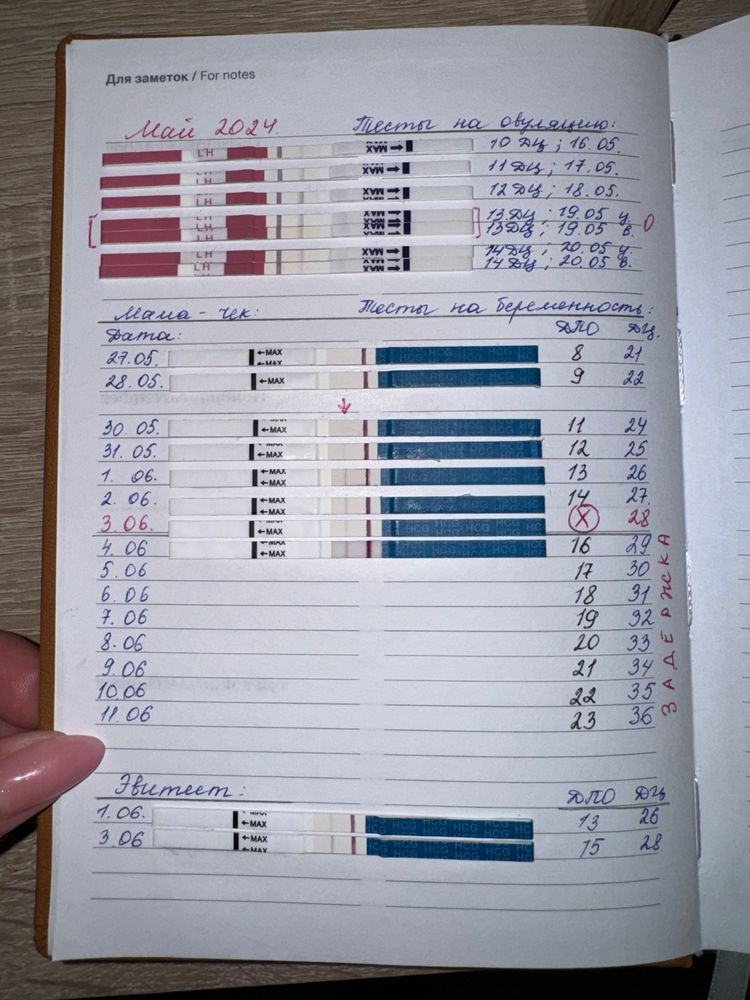 Для заметок / For notes
Май 2024. Тесты на овуляцию:
LH MAX 10 ДЦ ; 16.05.
MAX 11 ДЦ ; 17.05.
LH MAX 12 ДЦ ; 18.05.
LH MAX 13 ДЦ ; 19.05 у. О
LH MAX 13 ДЦ ; 19.05 в.
LH MAX 14 ДЦ ; 20.05 у.
LH MAX 14 ДЦ ; 20.05 в.
Мама - чек: Тесты на беременность:
Дата: ДПО ДЦ.
27.05. ←MAX HCG HCG HCG 8 21
28.05. ←MAX 9 22
30.05. ←MAX 11 24
31.05. ←MAX 12 25
1. 06. ←MAX 13 26
2. 06. ←MAX 14 27.
3.06. ←MAX X 28
4.06 ←MAX HCG HCG HCG HCG 16 29
5.06 17 30
6.06 18 31
7.06 19 32
8.06 20 33
9.06 21 34
10.06 22 35
11.06 23 36
ЗАДЕРЖКА
Эвитест: ДПО ДЦ
1.06. ←MAX HCG HCG HCG HC 13 26
3.06 ←MAX HCG HCG HCG HC 15 28